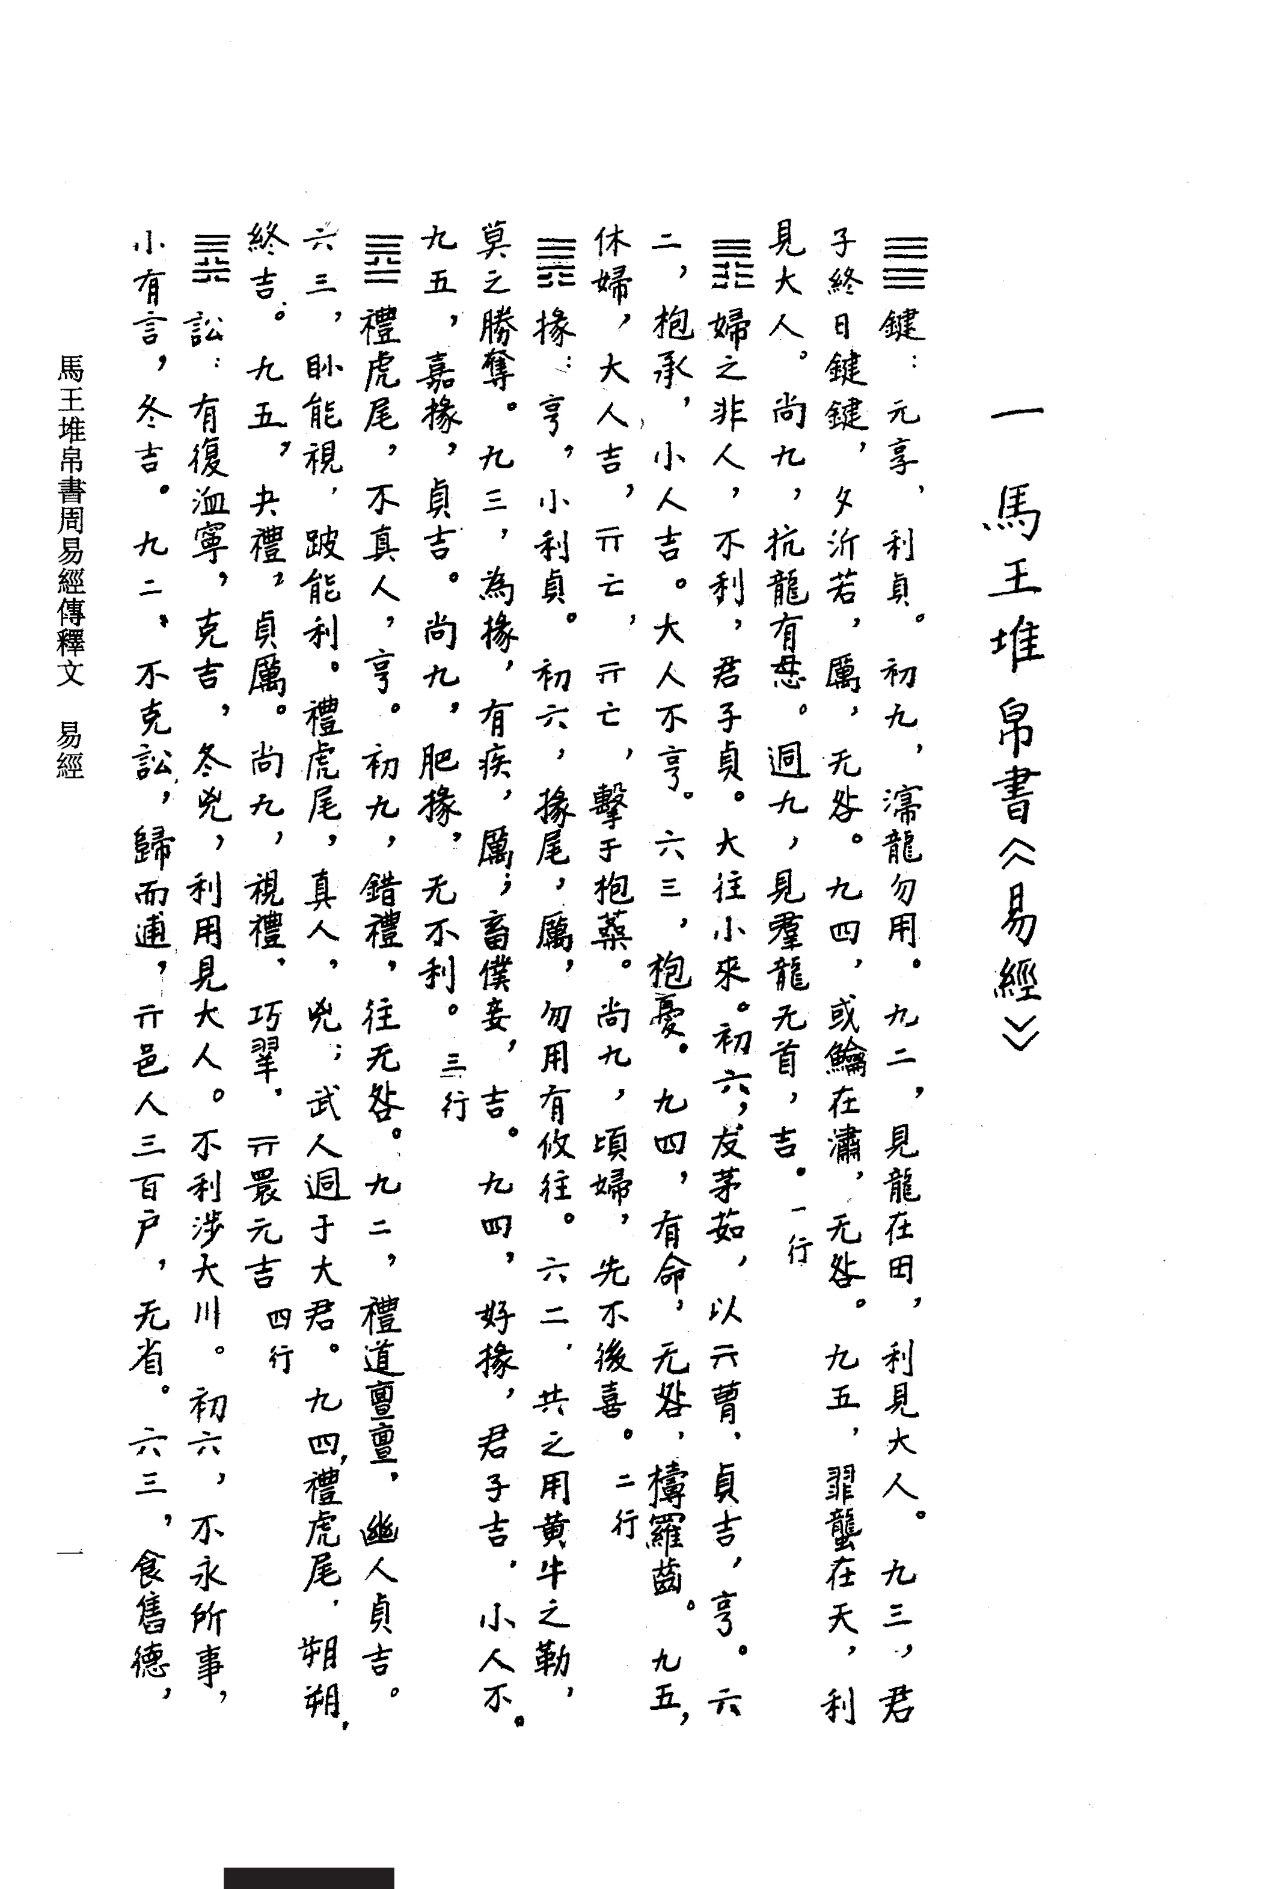 一 馬王堆帛書《易經》
䷀鍵：元享，利貞。初九，𣿅龍勿用。九二，見龍在田，利見大人。九三，君
子終日鍵鍵，夕沂若，厲，无咎。九四，或鱻在潚，无咎。九五，羿蠪在天，利
見大人。尚九，抗龍有悬。迵九，見羣龍无首，吉。一行
䷋婦之非人，不利，君子貞。大往小來。初六，犮茅茹，以亓曹，貞吉，亨。六
二，枹承，小人吉。大人不亨。六三，枹憂。九四，有命，无咎，檮羅齒。九五，
休婦，大人吉，亓亡，亓亡，擊于枹蘃。尚九，頃婦，先不後喜。二行
䷠掾：亨，小利貞。初六，掾尾，厲，勿用有攸往。六二，共之用黄牛之勒，
莫之勝奪。九三，為掾，有疾，厲；畜僕妾，吉。九四，好掾，君子吉，小人不。
九五，嘉掾，貞吉。尚九，肥掾，无不利。三行
䷉禮虎尾，不真人，亨。初九，錯禮，往无咎。九二，禮道亶亶，幽人貞吉。
六三，眇能視，跛能利。禮虎尾，真人，兇；武人迵于大君。九四，禮虎尾，朔朔，
終吉。九五，夬禮，貞厲。尚九，視禮，巧翠，亓睘元吉 四行
䷅訟：有復洫寧，克吉，冬兇，利用見大人。不利涉大川。初六，不永所事，
小有言，冬吉。九二，不克訟，歸而逋，亓邑人三百户，无省。六三，食舊德，
馬王堆帛書周易經傳釋文 易經
一